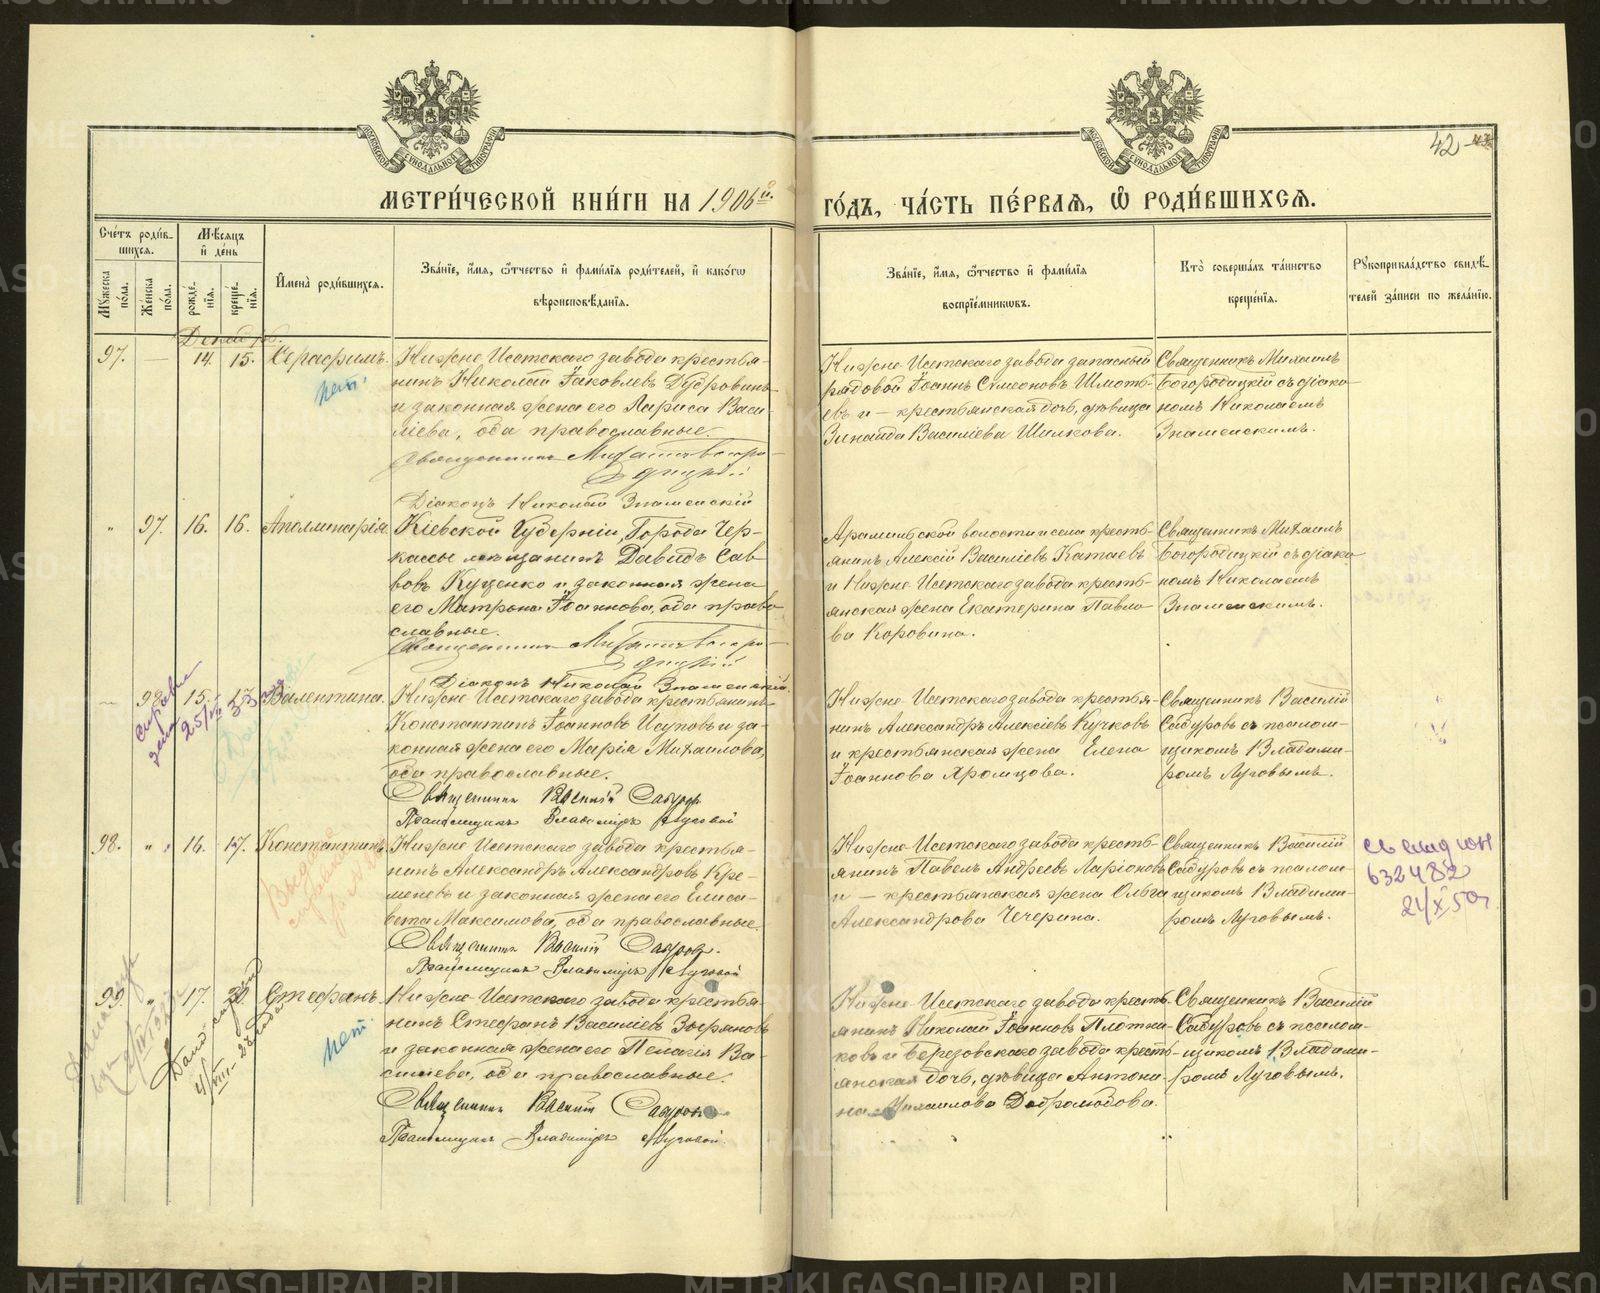 МЕТРИ́ЧЕСКОЙ КНИ́ГИ НА 1906й
ГО́ДЪ, ЧА́СТЬ ПЕ́РВАѦ, Ѡ РОДИ́ВШИХСѦ.
42
Сче́тъ роди́в-
шихся.
Мѣсяцъ
и҆ де́нь
Мꙋжеска по́ла.
Же́нска по́ла.
рожде́-
нїѧ.
креще́-
нїѧ.
И҆мена̀ роди́вшихся.
Зва́нїе, и҆́мя, ѻ҆́тчество и҆ фами́лїя роди́телей, и҆ како́гѡ
вѣроисповѣ́данїя.
Зва́нїе, и҆́мя, ѻ҆́тчество и҆ фами́лїя
воспрїе́мниковъ.
Кто̀ соверша́лъ та́инство
креще́нїя.
Рꙋкоприкла́дство свидѣ́-
телей за́писи по жела́нїю.
Декабрь.
97. — 14. 15. Серафимъ.
нет.
Нижне-Исетскаго завода крестья-
нинъ Николай Іаковлевъ Дубровинъ
и законная жена его Лариса Васи-
ліева, оба православные.
Священникъ Михаилъ Богоро-
дицкій
Діаконъ Николай Знаменскій
Нижне Исетскаго завода запасный
рядовой Іоаннъ Симеоновъ
и — крестьянская дочь, дѣвица
Зинаида Василіева Шилкова.
Священникъ Михаилъ
Богородицкій съ діако-
номъ Николаемъ
Знаменскимъ.
" 97. 16. 16. Аполлинарія
Кіевской Губерніи, Города Чер-
кассы мѣщанинъ Давидъ Сав-
вовъ Куценко и законная жена
его Матрона Іоаннова, оба право-
славные.
Священникъ Михаилъ Богоро-
дицкій
Діаконъ Николай Знаменскій
Арамильской волости и села кресть-
янинъ Алексій Василіевъ Катаевъ
и Нижне Исетскаго завода кресть-
янская жена Екатерина Павло-
ва Коровина.
Священникъ Михаилъ
Богородицкій съ діако-
номъ Николаемъ
Знаменскимъ.
— 98. 15. 17. Валентина.
справка
Нижне Исетскаго завода крестьянинъ
Константинъ Іоанновъ Исуповъ и за-
конная жена его Марія Михаилова,
оба православные.
Священникъ Василій Садуровъ
Псаломщикъ Владиміръ Луговой
Нижне Исетскаго завода крестья-
нинъ Александръ Алексіевъ Кучковъ
и крестьянская жена Елена
Іоаннова Хромцова.
Священникъ Василій
Садуровъ съ псалом-
щикомъ Владими-
ромъ Луговымъ.
98. " 16. 17. Константинъ.
Выдана
справка
Нижне Исетскаго завода крестья-
нинъ Александръ Александровъ Кре-
меневъ и законная жена его Елиса-
вета Максимова, оба православные.
Священникъ Василій Садуровъ.
Псаломщикъ Владиміръ Луговой
Нижне-Исетскаго завода кресть-
янинъ Павелъ Андреевъ Ларіоновъ
и — крестьянская жена Ольга
Александрова Чечерина.
Священникъ Василій
Садуровъ съ псалом-
щикомъ Владими-
ромъ Луговымъ.
632482
99. " 17. 20. Стефанъ.
нет.
Нижне-Исетскаго завода крестья-
нинъ Стефанъ Василіевъ Зыряновъ
и законная жена его Пелагія Ва-
силіева, оба православные.
Священникъ Василій Садуровъ
Псаломщикъ Владиміръ Луговой.
Нижне-Исетскаго завода кресть-
янинъ Николай Іоанновъ Плотни-
ковъ и Березовскаго завода кресть-
янская дочь, дѣвица Антони-
на Михаилова Добролюбова.
Священникъ Василій
Садуровъ съ псалом-
щикомъ Владими-
ромъ Луговымъ.
METRIKI.GASO-URAL.RU